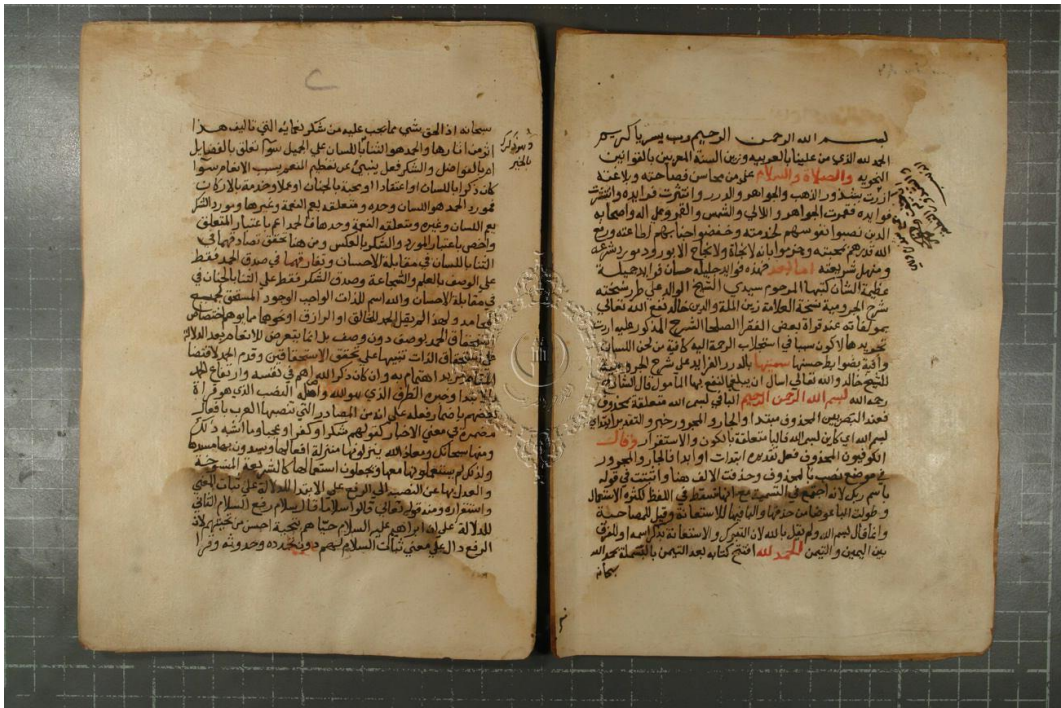 بسم الله الرحمن الرحيم رب يسر يا كريم
الحمد لله الذي من علينا بالعربيه وزين السنة المعربين بالقوانين
النحويه والصلاة والسلام على من محاسن فصاحته وبلاغته
ازرت بشذور الذهب والجواهر والدرر وانتثرت فوايده وانتشرت
فوايده فقهرت الجواهر واللالي والشمس والقمر وعلى اله واصحابه
الذين نصبوا نفوسهم لخدمته وخفضوا اجنابهم لطاعته ورفع
الله قدرهم بمحبته وجزموا بانه لا نجاة ولا نجاح الا بورود مورد شرعه
ومنهل شريعته اما بعد فهذه فوايد جليله حسان فوايد جميلة
عظيمة الشان كتبها المرحوم سيدي الشيخ الوالد على طرر نسخته
شرح الجرومية نسخة العلامة زين الملة والدين خالد نفع الله تعالى
بمولفاته عند قراة بعض الفقرا الصلحا الشرح المذكور عليه اردت
تجريدها لاكون سببا في استجلاب الرحمة اليه كافية من لحن اللسان
وافية بضوابط حسنها سميتها بالدرر الفرايد على شرح الجرومية
للشيخ خالد والله تعالى اسال ان يبلغ النفع بها المأمول قال الشارح
رحمه الله بسم الله الرحمن الرحيم البا في بسم الله متعلقة بمحذوف
فعند البصريين المحذوف مبتدا والجار والمجرور خبره والتقدير ابتداي
بسم الله اي كاين بسم الله فالبا متعلقة بالكون والاستقرار وقالت
الكوفيون المحذوف فعل تقديره ابتدات او ابدا فالجار والمجرور
في موضع نصب بالمحذوف وحذفت الالف هنا واثبتت في قوله
باسم ربك لانه اجتمع في التسمية مع انها تسقط في اللفظ لكثرة الاستعمال
وطولت البا عوضا من حذفها والبا فيها للاستعانة وقيل للمصاحبة
وانما قال بسم الله ولم يقل بالله لان التبرك والاستعانة بذكر اسمه او للفرق
بين اليمين والتيمن الحمد لله افتتح كتابه بعد التيمن بالبسملة بحمد الله
سبحانه
سبحانه اذ الحق شي مما يجب عليه من شكر نعمايه التي تاليف هذا
اثر من اثارها والحمد هو الثنا باللسان على الجميل سوآ تعلق بالفضايل
ام بالفواضل والشكر فعل ينبئ عن تعظيم المنعم بسبب الانعام سوآ
كان ذكرا باللسان او اعتقادا ومحبة بالجنان او عملا وخدمة بالاركان
فمورد الحمد هو اللسان وحده ومتعلقه يعم النعمة وغيرها ومورد الشكر
يعم اللسان وغيره ومتعلقه النعمة وحدها فالحمد اعم باعتبار المتعلق
واخص باعتبار المورد والشكر بالعكس ومن هنا تحقق تصادقهما في
الثنا باللسان في مقابلة الاحسان وتفارقهما في صدق الحمد فقط
على الوصف بالعلم والشجاعة وصدق الشكر فقط على الثنا بالجنان في
في مقابلة الاحسان والله اسم للذات الواجب الوجود المستحق لجميع
المحامد ولهذا لم يقل الحمد للخالق او الرازق او نحوهما مما يوهم اختصاص
استحقاق الحمد بوصف دون وصف بل انما يتعرض للانعام بعد الدلالة
على استحقاق الذات تنبيها على تحقق الاستحقاقين وقدم الحمد لاقتضا
المقام مزيد اهتمام به وان كان ذكر الله اهم في نفسه وارتفاع الحمد
بالابتدا وخبره الظرف الذي هو لله واصله النصب الذي هو قراة
بعضهم باضمار فعله على انه من المصادر التي تنصبها العرب بافعال
مضمرة في معنى الاخبار كقولهم شكرا وكفرا وعجبا وما اشبه ذلك
ومنها سبحانك ومعاذ الله ينزلونها منزلة افعالها ويسدون بها مسدها
ولذلك لم يستعملوها معها ويجعلون استعمالها كالشريعة المنسوخة
والعدل بها عن النصب الى الرفع على الابتدا للدلالة على ثبات المعنى
واستقراره ومنه قوله تعالى قالوا سلاما قال سلام رفع السلام الثاني
للدلالة على ان ابراهيم عليه السلام حياهم بتحية احسن من تحيتهم لان
الرفع دال على معنى ثبات السلام لهم دون تجدده وحدوثه وقرا